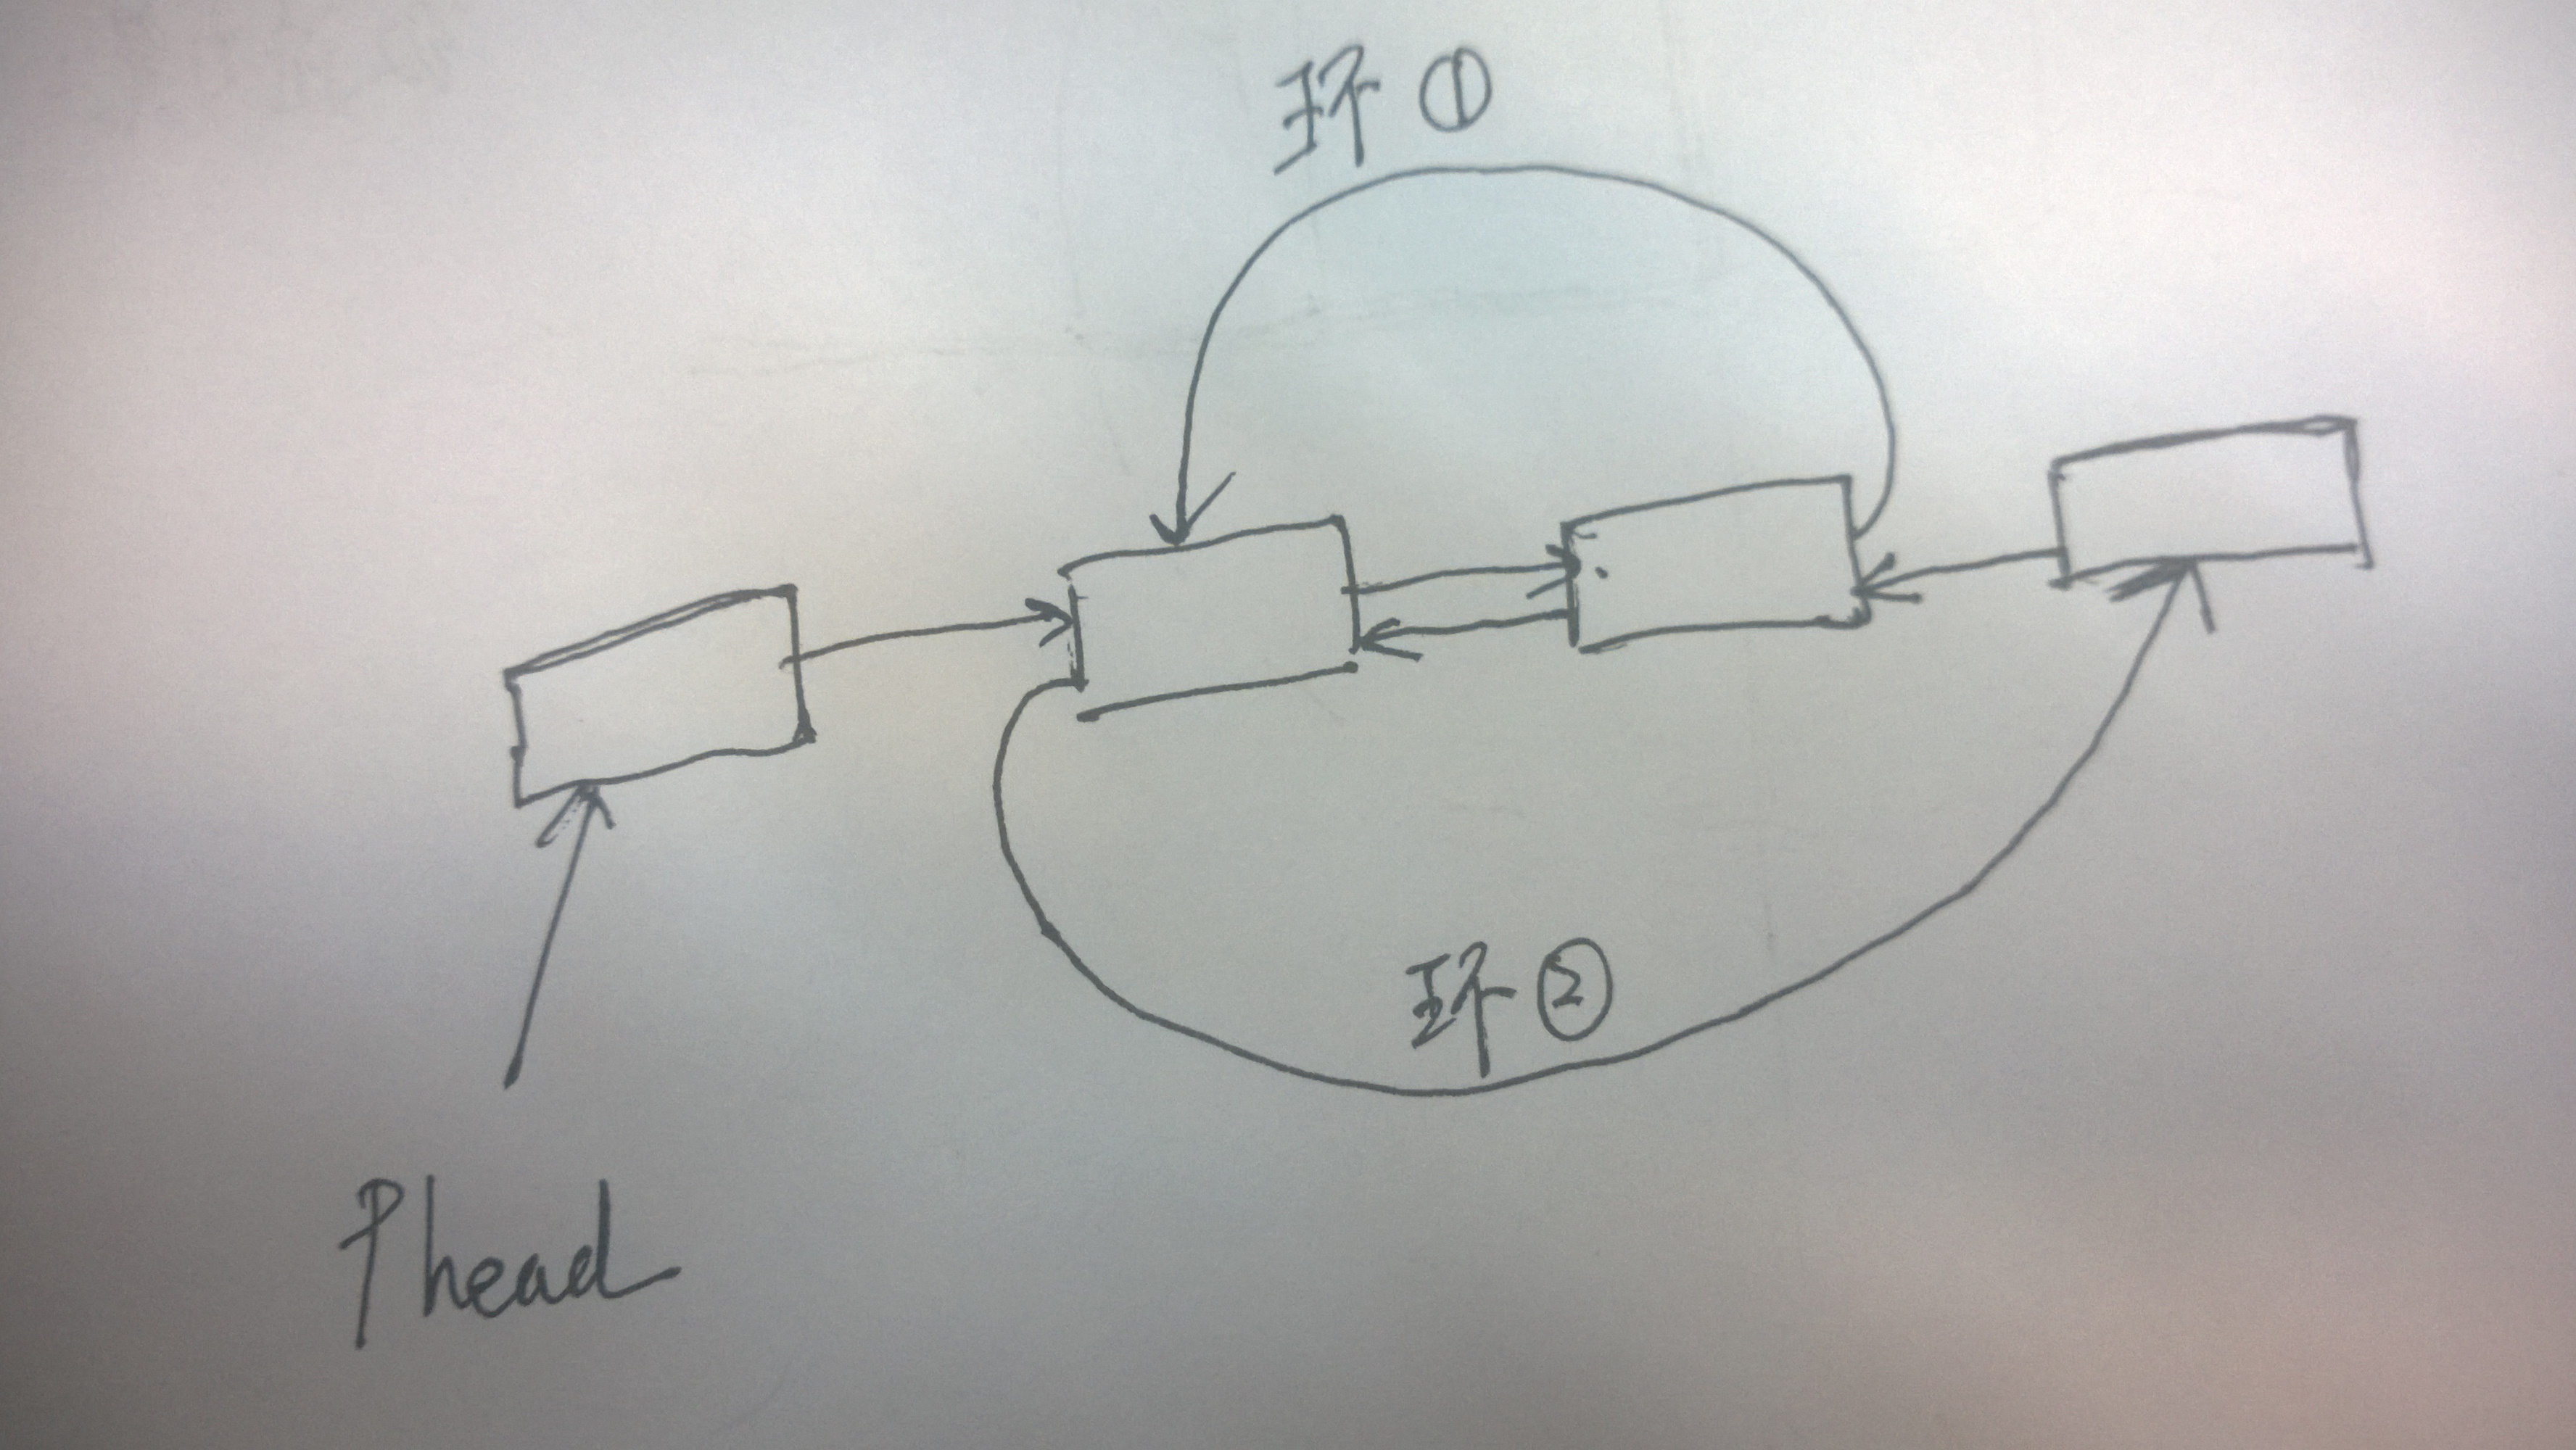 环 ①
环 ②
Phead